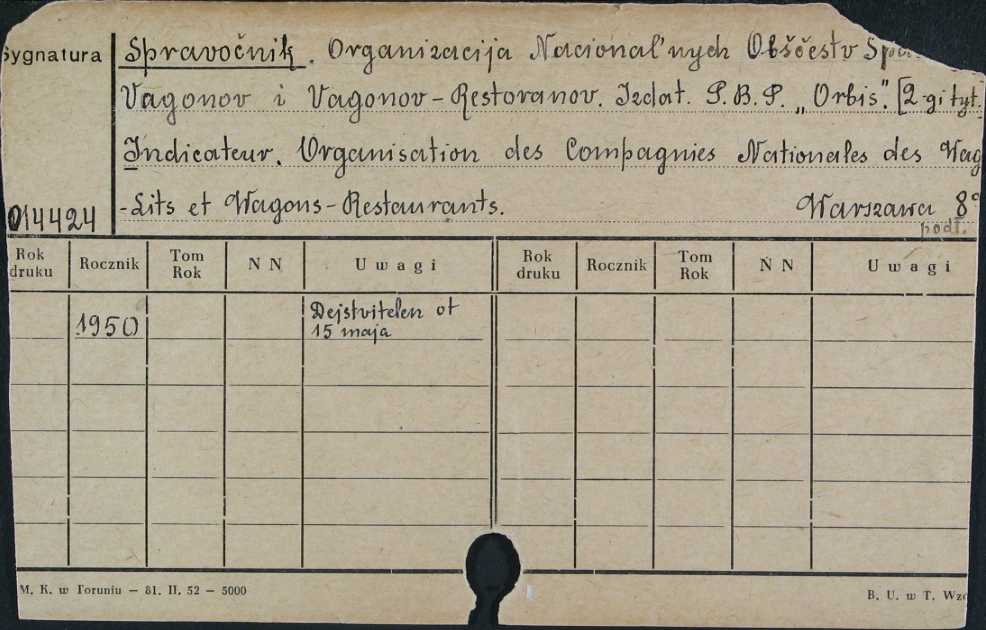 Sygnatura
Spravočnik. Organizacija Nacional'nych Obščestv
Vagonov i Vagonov-Restoranov. Izdat. P.B.P. „Orbis". [2-gi tyt.
Indicateur. Organisation des Compagnies Nationales des Wag
014424 -Lits et Wagons-Restaurants. Warszawa 8°
podł.
Rok druku Rocznik Tom Rok N N Uwagi Rok druku Rocznik Tom Rok N N Uwagi
1950 Dejstvitelen ot
15 maja
M. K. w Toruniu — 81. II. 52 — 5000 B. U. w T.